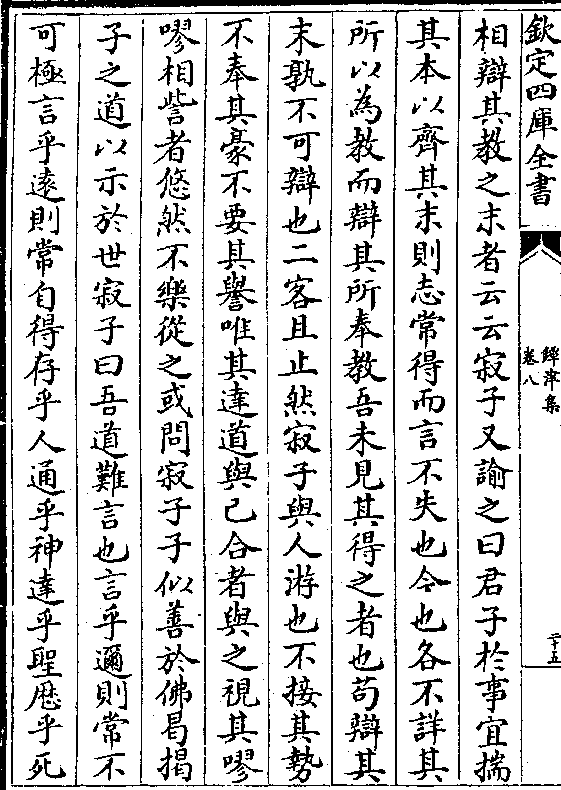 欽定四庫全書
鐔津集
卷八
二十五
相辯其教之末者云云寂子又諭之曰君子於事宜揣
其本以齊其末則志常得而言不失也今也各不詳其
所以為教而辯其所奉教吾未見其得之者也苟辯其
末孰不可辯也二客且止然寂子與人游也不接其勢
不奉其豪不要其譽唯其達道與己合者與之視其嘐
嘐相訾者悠然不樂從之或問寂子子似善於佛曷揭
子之道以示於世寂子曰吾道難言也言乎邇則常不
可極言乎遠則常自得存乎人通乎神達乎聖歴乎死